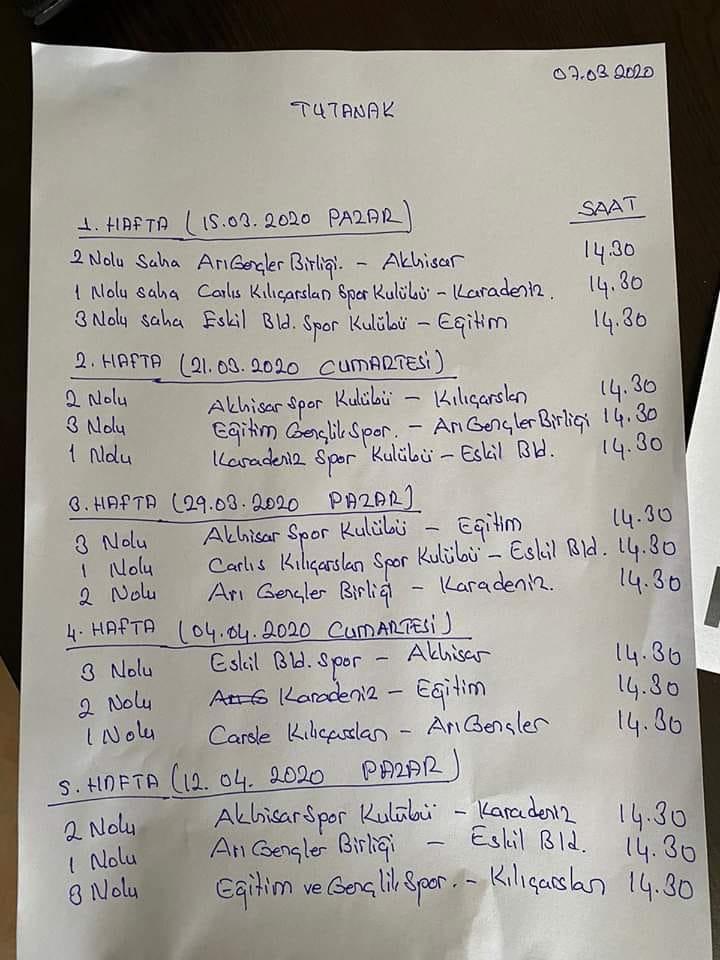 07.03.2020
TUTANAK
1. HAFTA (15.03.2020 PAZAR) SAAT
2 Nolu Saha Arı Gençler Birliği. - Akhisar 14.30
1 Nolu saha Carlıs Kılıçarslan Spor Kulübü - Karadeniz. 14.30
3 Nolu saha Eskil Bld. Spor Kulübü - Eğitim 14.30
2. HAFTA (21.03.2020 CUMARTESİ)
2 Nolu Akhisar Spor Kulübü - Kılıçarslan 14.30
3 Nolu Eğitim Gençlik Spor. - Arı Gençler Birliği 14.30
1 Nolu Karadeniz Spor Kulübü - Eskil Bld. 14.30
3. HAFTA (29.03.2020 PAZAR)
3 Nolu Akhisar Spor Kulübü - Eğitim 14.30
1 Nolu Carlıs Kılıçarslan Spor Kulübü - Eskil Bld. 14.30
2 Nolu Arı Gençler Birliği - Karadeniz. 14.30
4. HAFTA (04.04.2020 CUMARTESİ)
3 Nolu Eskil Bld. Spor - Akhisar 14.30
2 Nolu Karadeniz - Eğitim 14.30
1 Nolu Carole Kılıçarslan - Arı Gençler 14.30
5. HAFTA (12.04.2020 PAZAR)
2 Nolu Akhisar Spor Kulübü - Karadeniz 14.30
1 Nolu Arı Gençler Birliği - Eskil Bld. 14.30
3 Nolu Eğitim ve Gençlik Spor. - Kılıçarslan 14.30